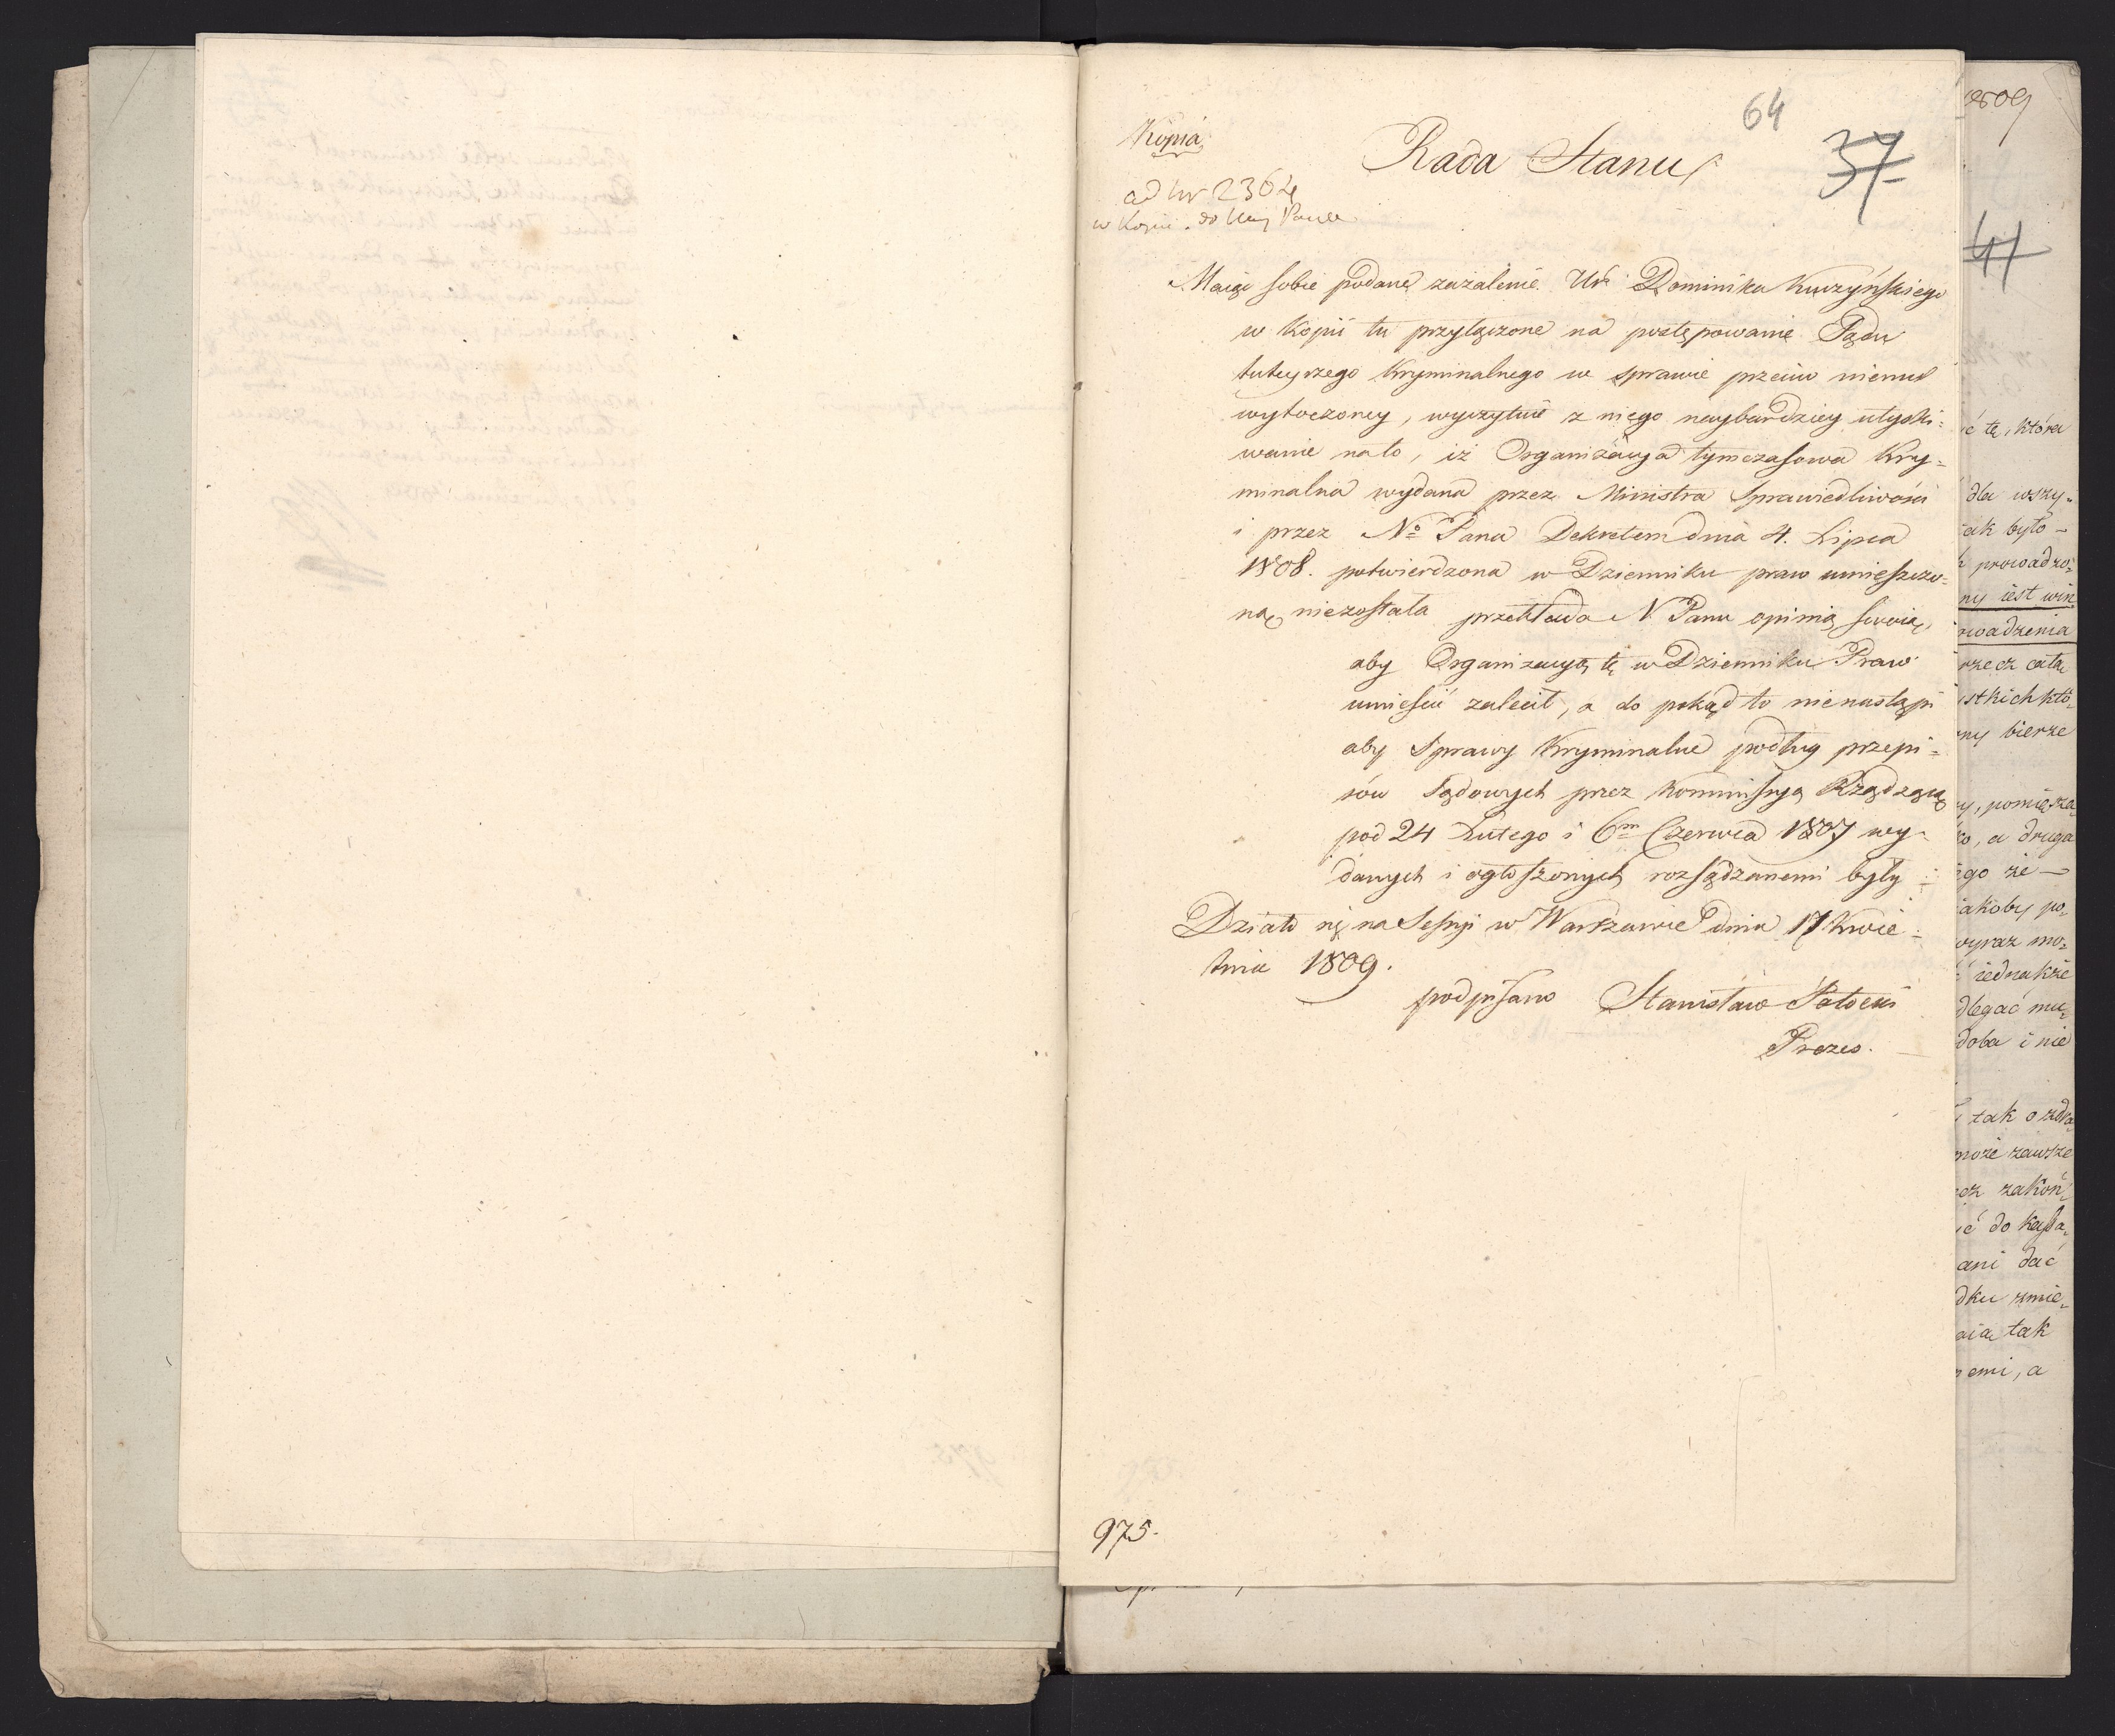 64
37
Kopia
Rada Stanu
ad Nr 2364
w Kopii do
Maiąc sobie podane zażalenie Ur: Dominika Kuczyńskiego
w Kopii tu przyłączone na postępowanie Sądu
tuteyszego Kryminalnego w sprawie przeciw niemu
wytoczoney, wyczytuie z niego naybardziey utyski=
wanie nato, iż Organizacya tymczasowa Kry=
minalna wydana przez Ministra Sprawiedliwości
i przez Nº Pana Dekretem dnia 4. Lipca
1808. potwierdzona w Dzienniku praw umieszczo=
ną niezostała przekłada N. Panu opinią swoią,
aby Organizacyą tę w Dzienniku Praw
umieścić zalecił, a do pokąd to nienastąpi
aby Sprawy Kryminalne podług przepi=
sów Sądowych przez Kommissyą Rządzącą
pod 24 Lutego i 6m Czerwca 1807 wy=
danych i ogłoszonych rozsądzanemi były
Działo się na Sessyi w Warszawie dnia 17 Kwie=
tnia 1809.
podpisano Stanisław Potocki
Prezes.
975.
1809
41
ć tę, która
dla wszy=
iak było –
prowadzo=
ny iest win
wadzenia
rzecz cała
stkich któ=
ny bierze
y, pomiesza
ko, a druga
ego że –
iakoby po=
wyraz mo=
iednakże
dlegać mu=
doba i nie
tak o
może zawsze
zakoń=
ć do Kassa=
ani dać
dku zmie=
aią tak
emi, a